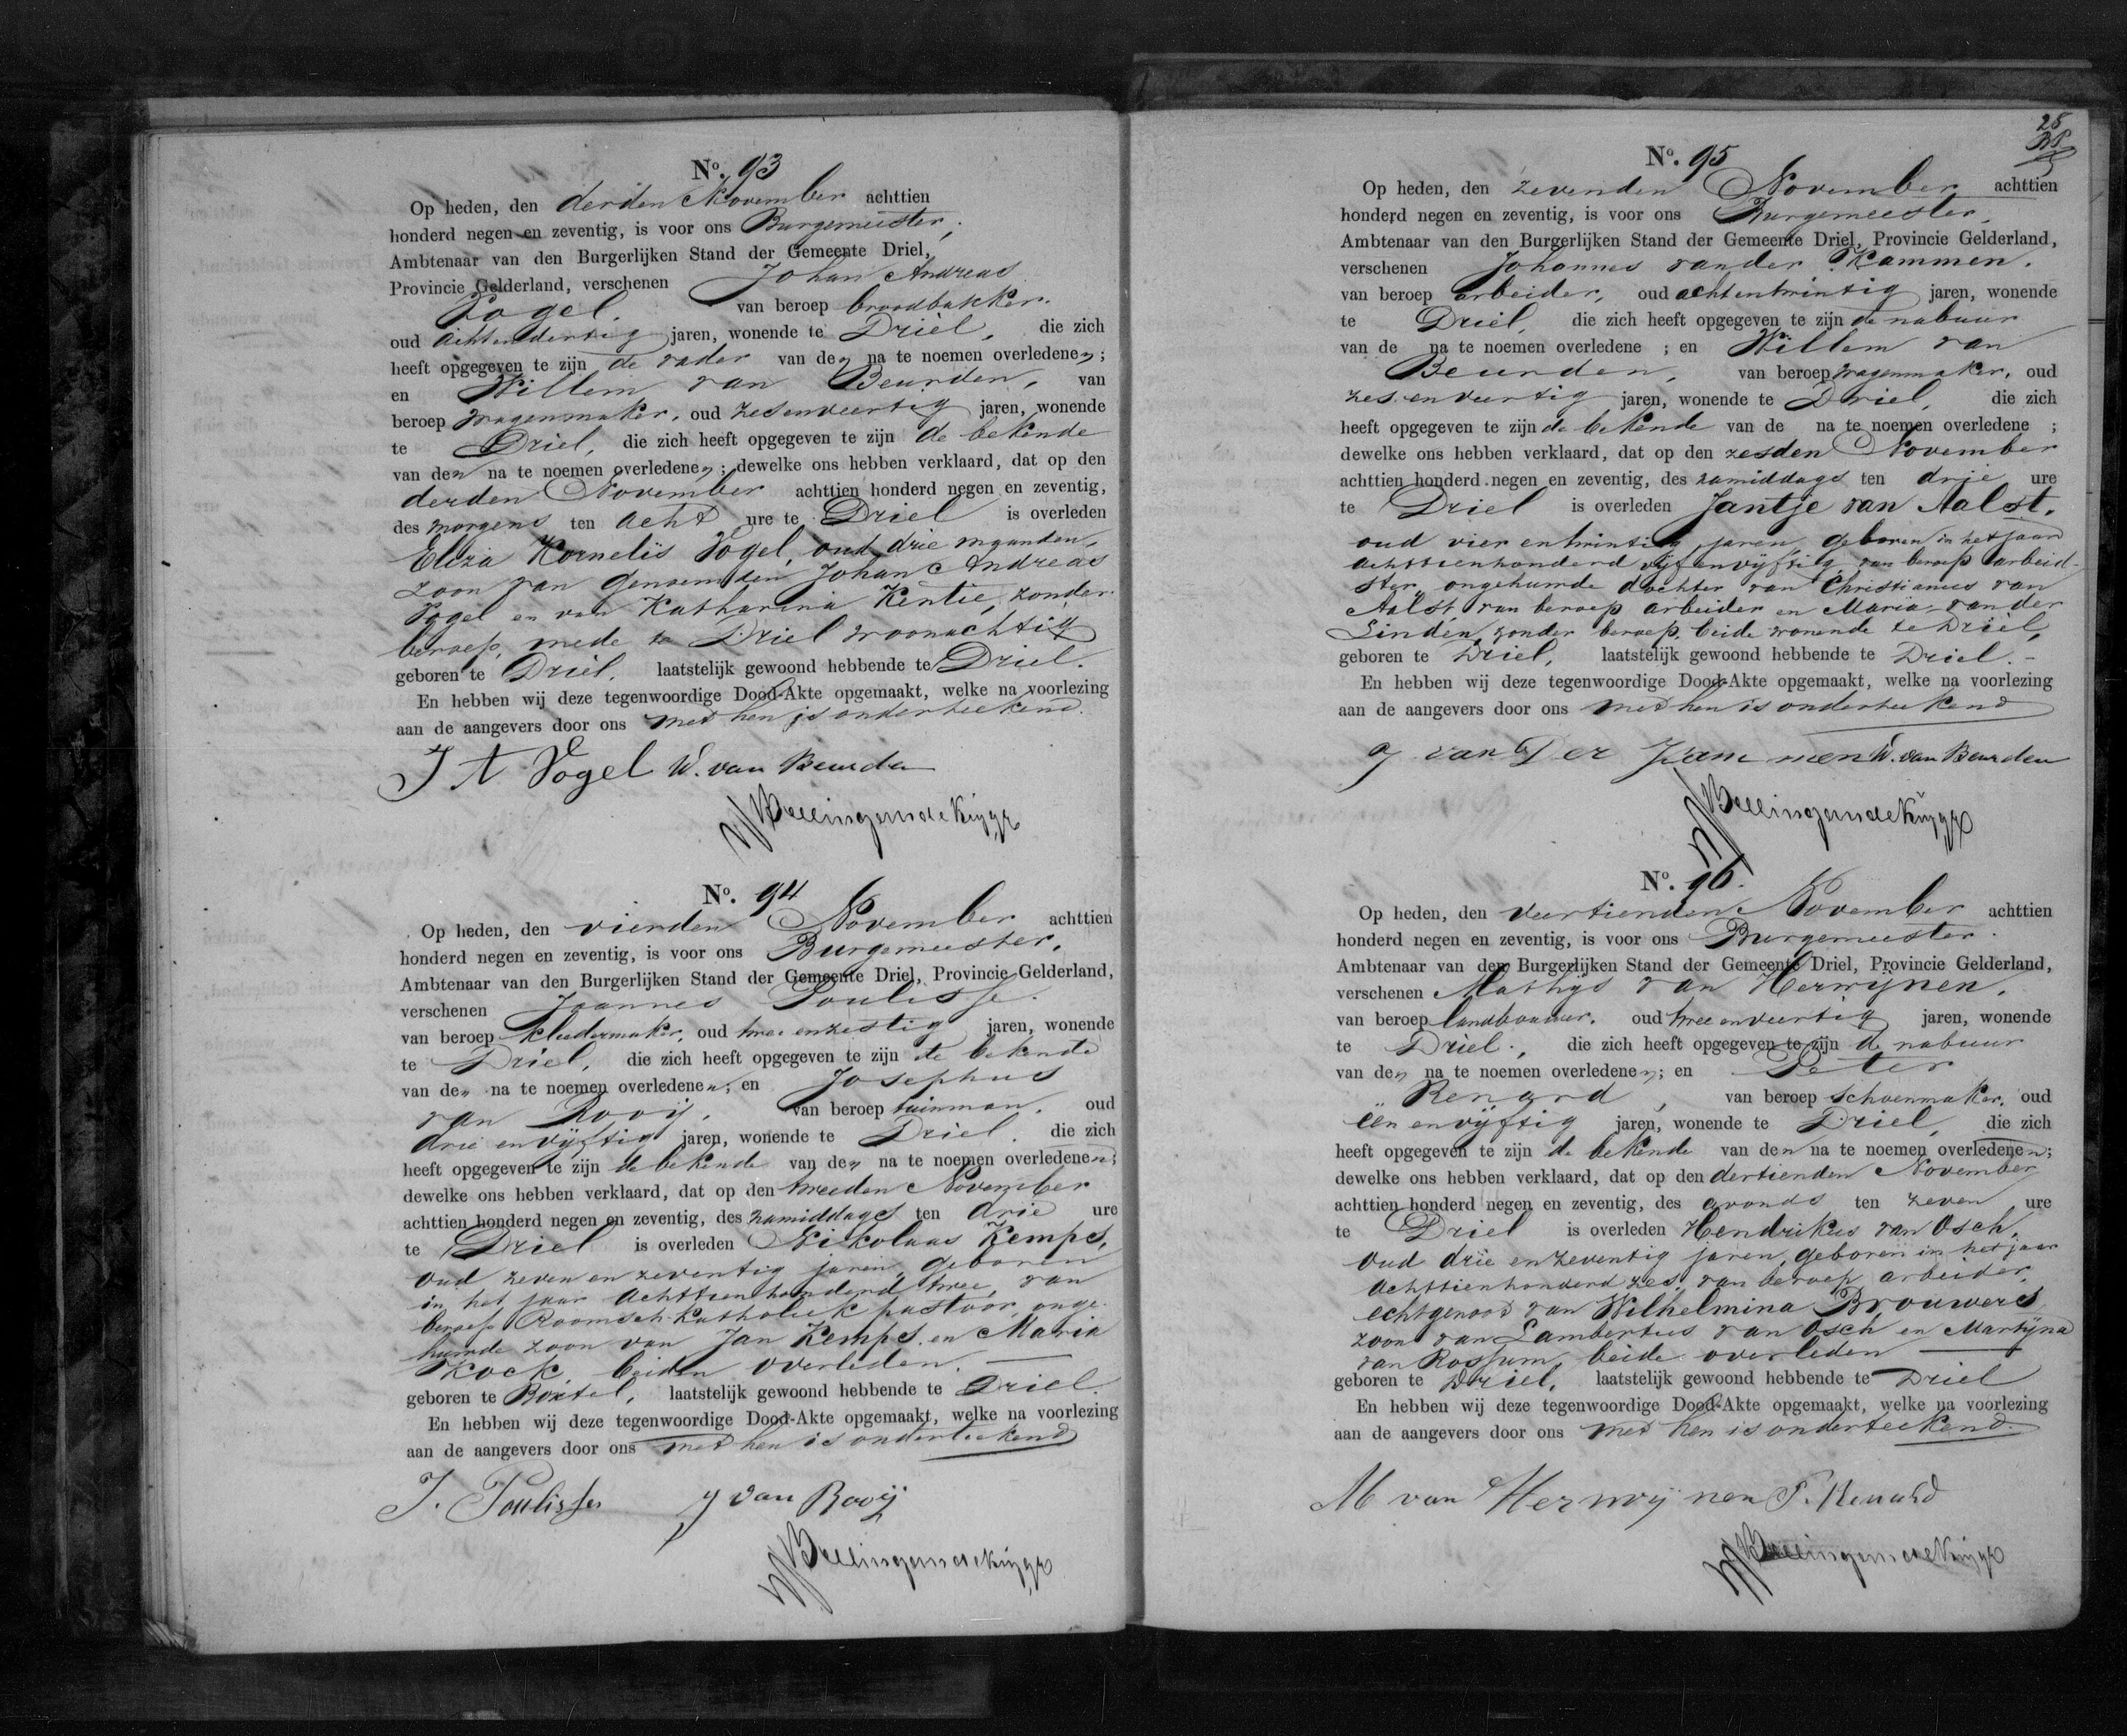 No. 93
Op heden, den derden November achttien
honderd negen en zeventig, is voor ons Burgemeister,
Ambtenaar van den Burgerlijken Stand der Gemeente Driel,
Provincie Gelderland, verschenen Johan Andreas
Vogel, van beroep broodbakker,
oud achtendertig jaren, wonende te Driel, die zich
heeft opgegeven te zijn de vader van den na te noemen overledenen;
en Willem van Beurden, van
beroep wagenmaker, oud zesenveertig jaren, wonende
te Driel, die zich heeft opgegeven te zijn de bekende
van den na te noemen overledenen; dewelke ons hebben verklaard, dat op den
derden November achttien honderd negen en zeventig,
des morgens ten acht ure te Driel is overleden
Eliza Kornelis Vogel, oud drie maanden,
zoon van genoemden Johan Andreas
Vogel en van Katharina Kentie, zonder
beroep, mede te Driel woonachtig
geboren te Driel, laatstelijk gewoond hebbende te Driel.
En hebben wij deze tegenwoordige Dood-Akte opgemaakt, welke na voorlezing
aan de aangevers door ons met hen is onderteekend.
J A Vogel W. van Beurden
No. 94
Op heden, den vierden November achttien
honderd negen en zeventig, is voor ons Burgemeester,
Ambtenaar van den Burgerlijken Stand der Gemeente Driel, Provincie Gelderland,
verschenen Joannes Poulisse.
van beroep kleedermaker, oud twee en zestig jaren, wonende
te Driel, die zich heeft opgegeven te zijn de bekende
van den na te noemen overledenen; en Josephus
van Rooij, van beroep tuinman, oud
drie en vijftig jaren, wonende te Driel, die zich
heeft opgegeven te zijn de bekende van den na te noemen overledenen;
dewelke ons hebben verklaard, dat op den tweeden November
achttien honderd negen en zeventig, des namiddags ten drie ure
te Driel is overleden Nikolaas Kemps,
oud zeven en zeventig jaren, geboren
in het jaar achttienhonderd twee, van
beroep Roomsch Katholiek pastoor, onge-
huwde zoon van Jan Kemps en Maria
Kock, beiden overleden.
geboren te Boxtel, laatstelijk gewoond hebbende te Driel.
En hebben wij deze tegenwoordige Dood-Akte opgemaakt, welke na voorlezing
aan de aangevers door ons met hen is onderteekend
J. Poulisse J van Rooij
25
No. 95
Op heden, den zevenden November achttien
honderd negen en zeventig, is voor ons Burgemeester,
Ambtenaar van den Burgerlijken Stand der Gemeente Driel, Provincie Gelderland,
verschenen Johannes van der Kammen,
van beroep arbeider, oud achtentwintig jaren, wonende
te Driel, die zich heeft opgegeven te zijn de nabuur
van de na te noemen overledene ; en Willem van
Beurden, van beroep wagenmaker, oud
zes en veertig jaren, wonende te Driel, die zich
heeft opgegeven te zijn de bekende van de na te noemen overledene ;
dewelke ons hebben verklaard, dat op den zesden November
achttien honderd negen en zeventig, des namiddags ten drie ure
te Driel is overleden Jantje van Aalst,
oud vier en twintig jaren, geboren in het jaar
achttienhonderd vijf en vijftig, van beroep arbeid-
ster, ongehuwde dochter van Christianus van
Aalst van beroep arbeider en Maria van der
Linden, zonder beroep, beide wonende te Driel,
geboren te Driel, laatstelijk gewoond hebbende te Driel.
En hebben wij deze tegenwoordige Dood-Akte opgemaakt, welke na voorlezing
aan de aangevers door ons met hen is onderteekend
J van Der Kam men W. van Beurden
No. 96.
Op heden, den veertienden November achttien
honderd negen en zeventig, is voor ons Burgemeester.
Ambtenaar van den Burgerlijken Stand der Gemeente Driel, Provincie Gelderland,
verschenen Mathijs van Herwijnen,
van beroep landbouwer, oud twee en veertig jaren, wonende
te Driel, die zich heeft opgegeven te zijn de nabuur
van den na te noemen overledenen; en Peter
Renard, van beroep schoenmaker, oud
een en vijftig jaren, wonende te Driel, die zich
heeft opgegeven te zijn de bekende van den na te noemen overledenen;
dewelke ons hebben verklaard, dat op den dertienden November
achttien honderd negen en zeventig, des avonds ten zeven ure
te Driel is overleden Hendrikus van Osch,
oud drie en zeventig jaren, geboren in het jaar
achttienhonderd zes, van beroep arbeider,
echtgenoot van Wilhelmina Brouwers
zoon van Lambertus van Osch en Martijna
van Rossum, beide overleden
geboren te Driel, laatstelijk gewoond hebbende te Driel
En hebben wij deze tegenwoordige Dood-Akte opgemaakt, welke na voorlezing
aan de aangevers door ons met hen is onderteekend.
M van Herwij nen P. Renard